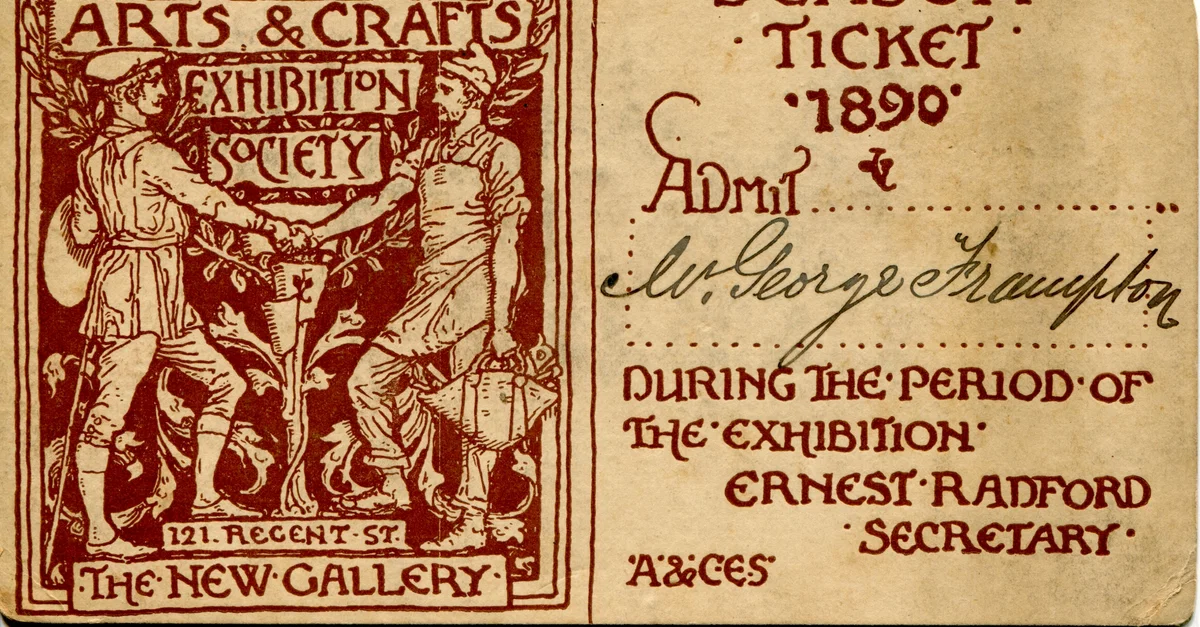 ARTS & CRAFTS
EXHIBITION
SOCIETY
121. REGENT·ST.
·THE·NEW·GALLERY·
·TICKET·
·1890·
ADMIT
Mr. George Frampton
DURING·THE·PERIOD·OF
THE·EXHIBITION·
ERNEST·RADFORD
·SECRETARY·
·A·&·C·E·S·